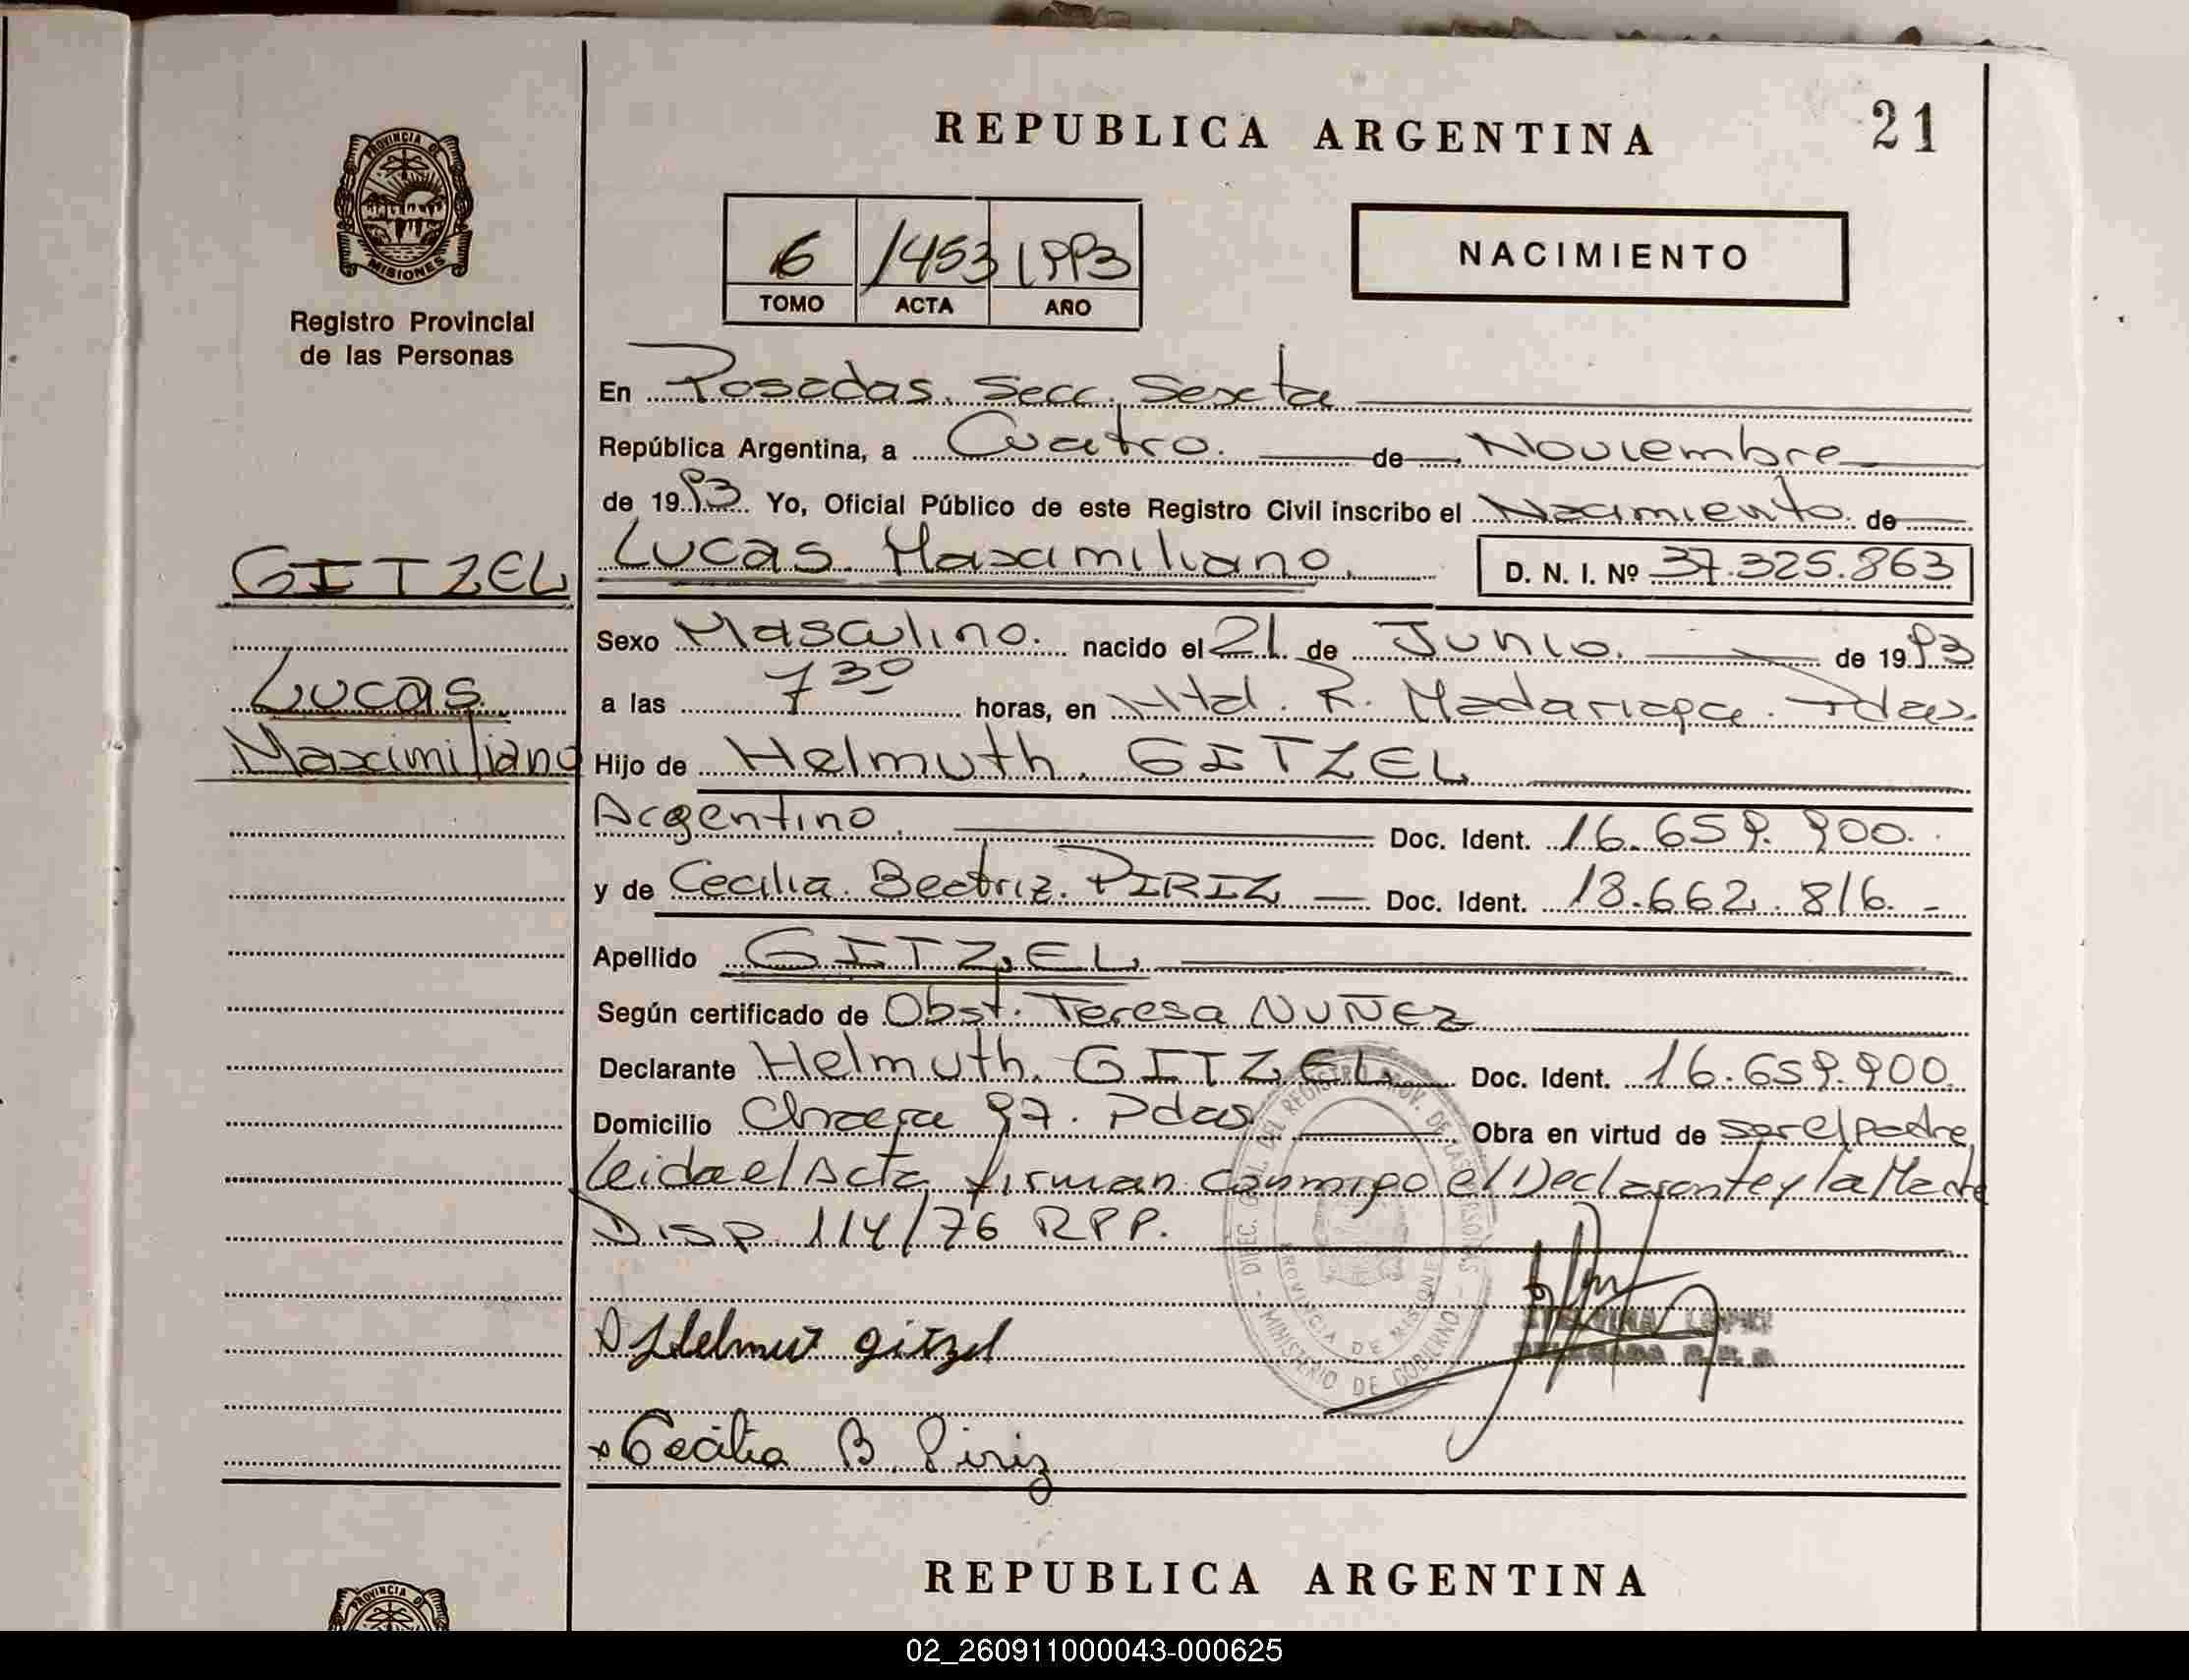 REPUBLICA ARGENTINA
21
PROVINCIA DE
MISIONES
Registro Provincial
de las Personas
6 1453 1993
TOMO ACTA AÑO
NACIMIENTO
En Posadas. Secc. Sexta
República Argentina, a Cuatro. de Noviembre
de 1993 Yo, Oficial Público de este Registro Civil inscribo el Nacimiento. de
GITZEL
Lucas Maximiliano.
D. N. I. Nº 37.325.863
Sexo Masculino. nacido el 21 de Junio. de 1993
Lucas
Maximiliano
a las 7 30 horas, en Htal. R. Madariaga. Pdas.
Hijo de Helmuth. GITZEL
Argentino. Doc. Ident. 16.659.900.
y de Cecilia. Beatriz. PIRIZ Doc. Ident. 18.662.816.-
Apellido GITZEL
Según certificado de Obst. Teresa NUÑEZ
Declarante Helmuth. GITZEL Doc. Ident. 16.659.900.
Domicilio Chacra 97. Pdas. Obra en virtud de ser el padre
Leida el Acta, firman conmigo el Declarante y la Madre
Disp. 114/76 RPP.
DIREC. GRAL. DEL REGISTRO PROV. DE LAS PERSONAS
PROVINCIA DE MISIONES
- MINISTERIO DE GOBIERNO -
LOPEZ
DELEGADA
Helmut gitzel
Cecilia B. Piriz
PROVINCIA D
REPUBLICA ARGENTINA
02_260911000043-000625